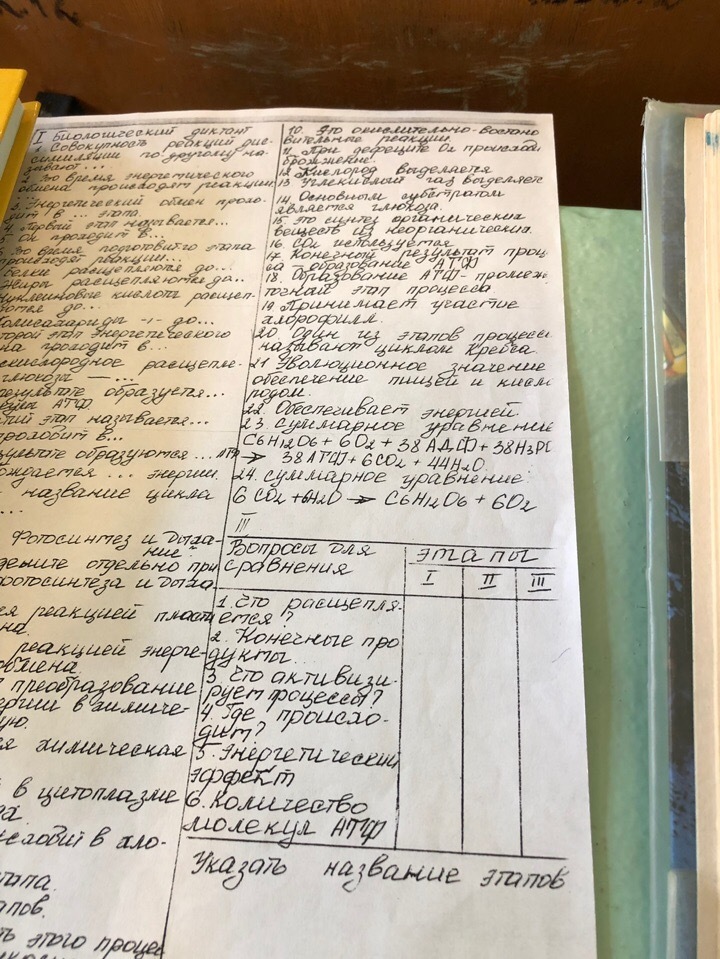 I Биологический диктант
1. Совокупность реакций дис-
симиляции по другому на-
зывают...
2. Во время энергетического
обмена происходят реакции
3. Энергетический обмен прохо-
дит в ... этапа.
4. Первый этап называется...
5. Он проходит в...
6. Во время подготовит. этапа
происходят реакции...
Белки расщепляются до...
Жиры расщепляются до..
Нуклеиновые кислоты расщеп-
ляются до...
Полисахариды -"- до...
второй этап энергетического
на проходит в...
скислородное расщепле-
глюкозы — ...
результате образуется...
лы АТФ.
тий этап называется...
проходит в...
зультате образуются ... АТФ
ождается ... энергии.
название цикла
...
Фотосинтез и дыха-
ние?
делите отдельно при
фотосинтеза и дыха
ся реакцией пласт
на.
реакцией энерге-
обмена.
преобразование
ергии в химиче-
ую.
ся химическая
в цитоплазме
да.
исходит в хло-
тапа.
апов.
ть этого процес
10. Это окислительно-востано
вительные реакции.
11. При дефеците О2 происходи
брожение.
12. Кислород выделяется
13 Углекислый газ выделяет
14. Основным субстратом
является глюкоза.
15. Это синтез органических
веществ из неорганических.
16. СО2 используется
17. Конечный результат проц
са – образование АТФ
18. Образование АТФ - промеж
точный этап процесса
19. Принимает участие
хлорофилл.
20 Один из этапов процесса
называют циклом Кребса.
21 Эволюционное значение
обеспечение пищей и кисл
родом.
22. Обеспечивает энергией.
23. Суммарное уравнение
C6H12O6 + 6O2 + 38АДФ + 38H3P(
→ 38АТФ + 6CO2 + 44H2O.
24. Суммарное уравнение:
6 CO2 + 6H2O → C6H12O6 + 6O2
III
Вопросы для сравнения
этапы
I II III
1. Что расщепля-
ется?
2. Конечные про
дукты...
3. Что активизи-
рует процессы?
4. Где происхо-
дит?
5. Энергетический
эффект
6. Количество
молекул АТФ
Указать название этапов